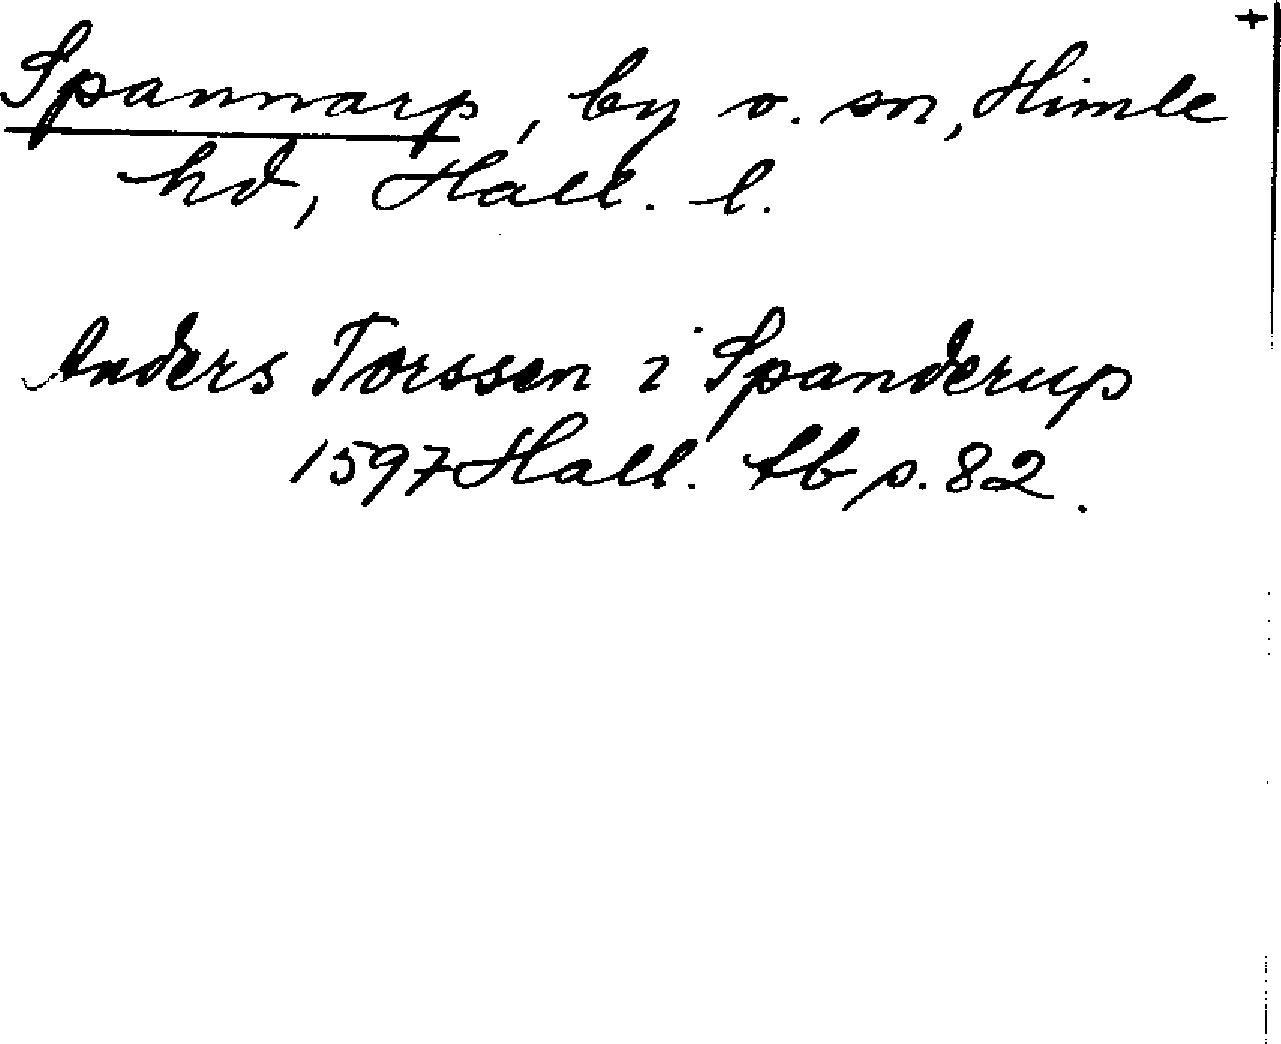 +
Spannarp, by o. sn, Himle
hd, Hall. l.
Anders Torssen i Spanderup
1597 Hall. tb s. 82.